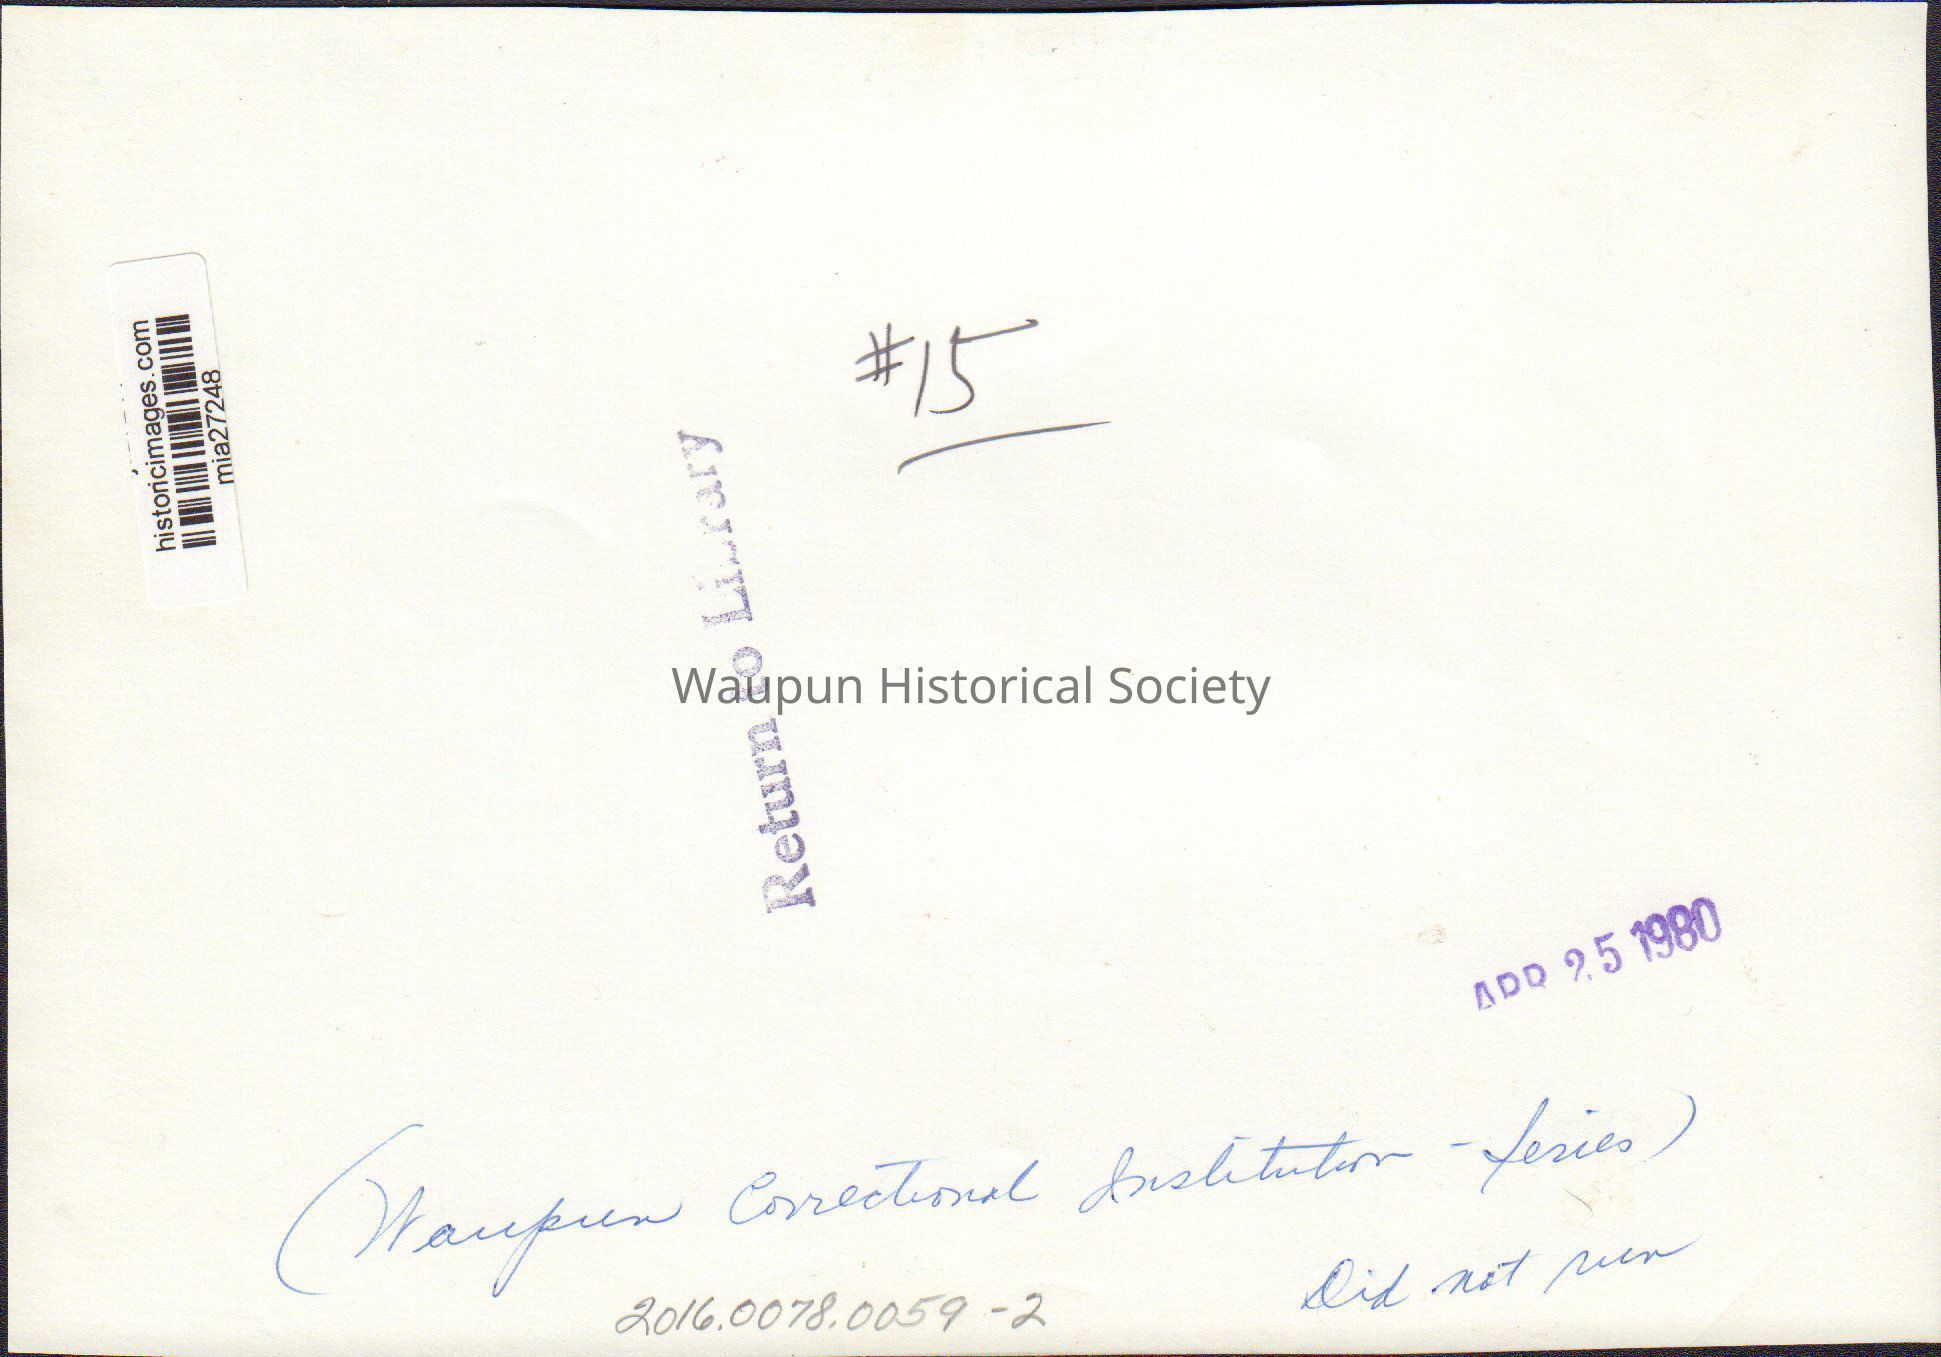 historicimages.com
mia27248
#15
Return to Library
Waupun Historical Society
25 1980
(Waupun Correctional Institution - Series)
Did not run
2016.0078.0059-2